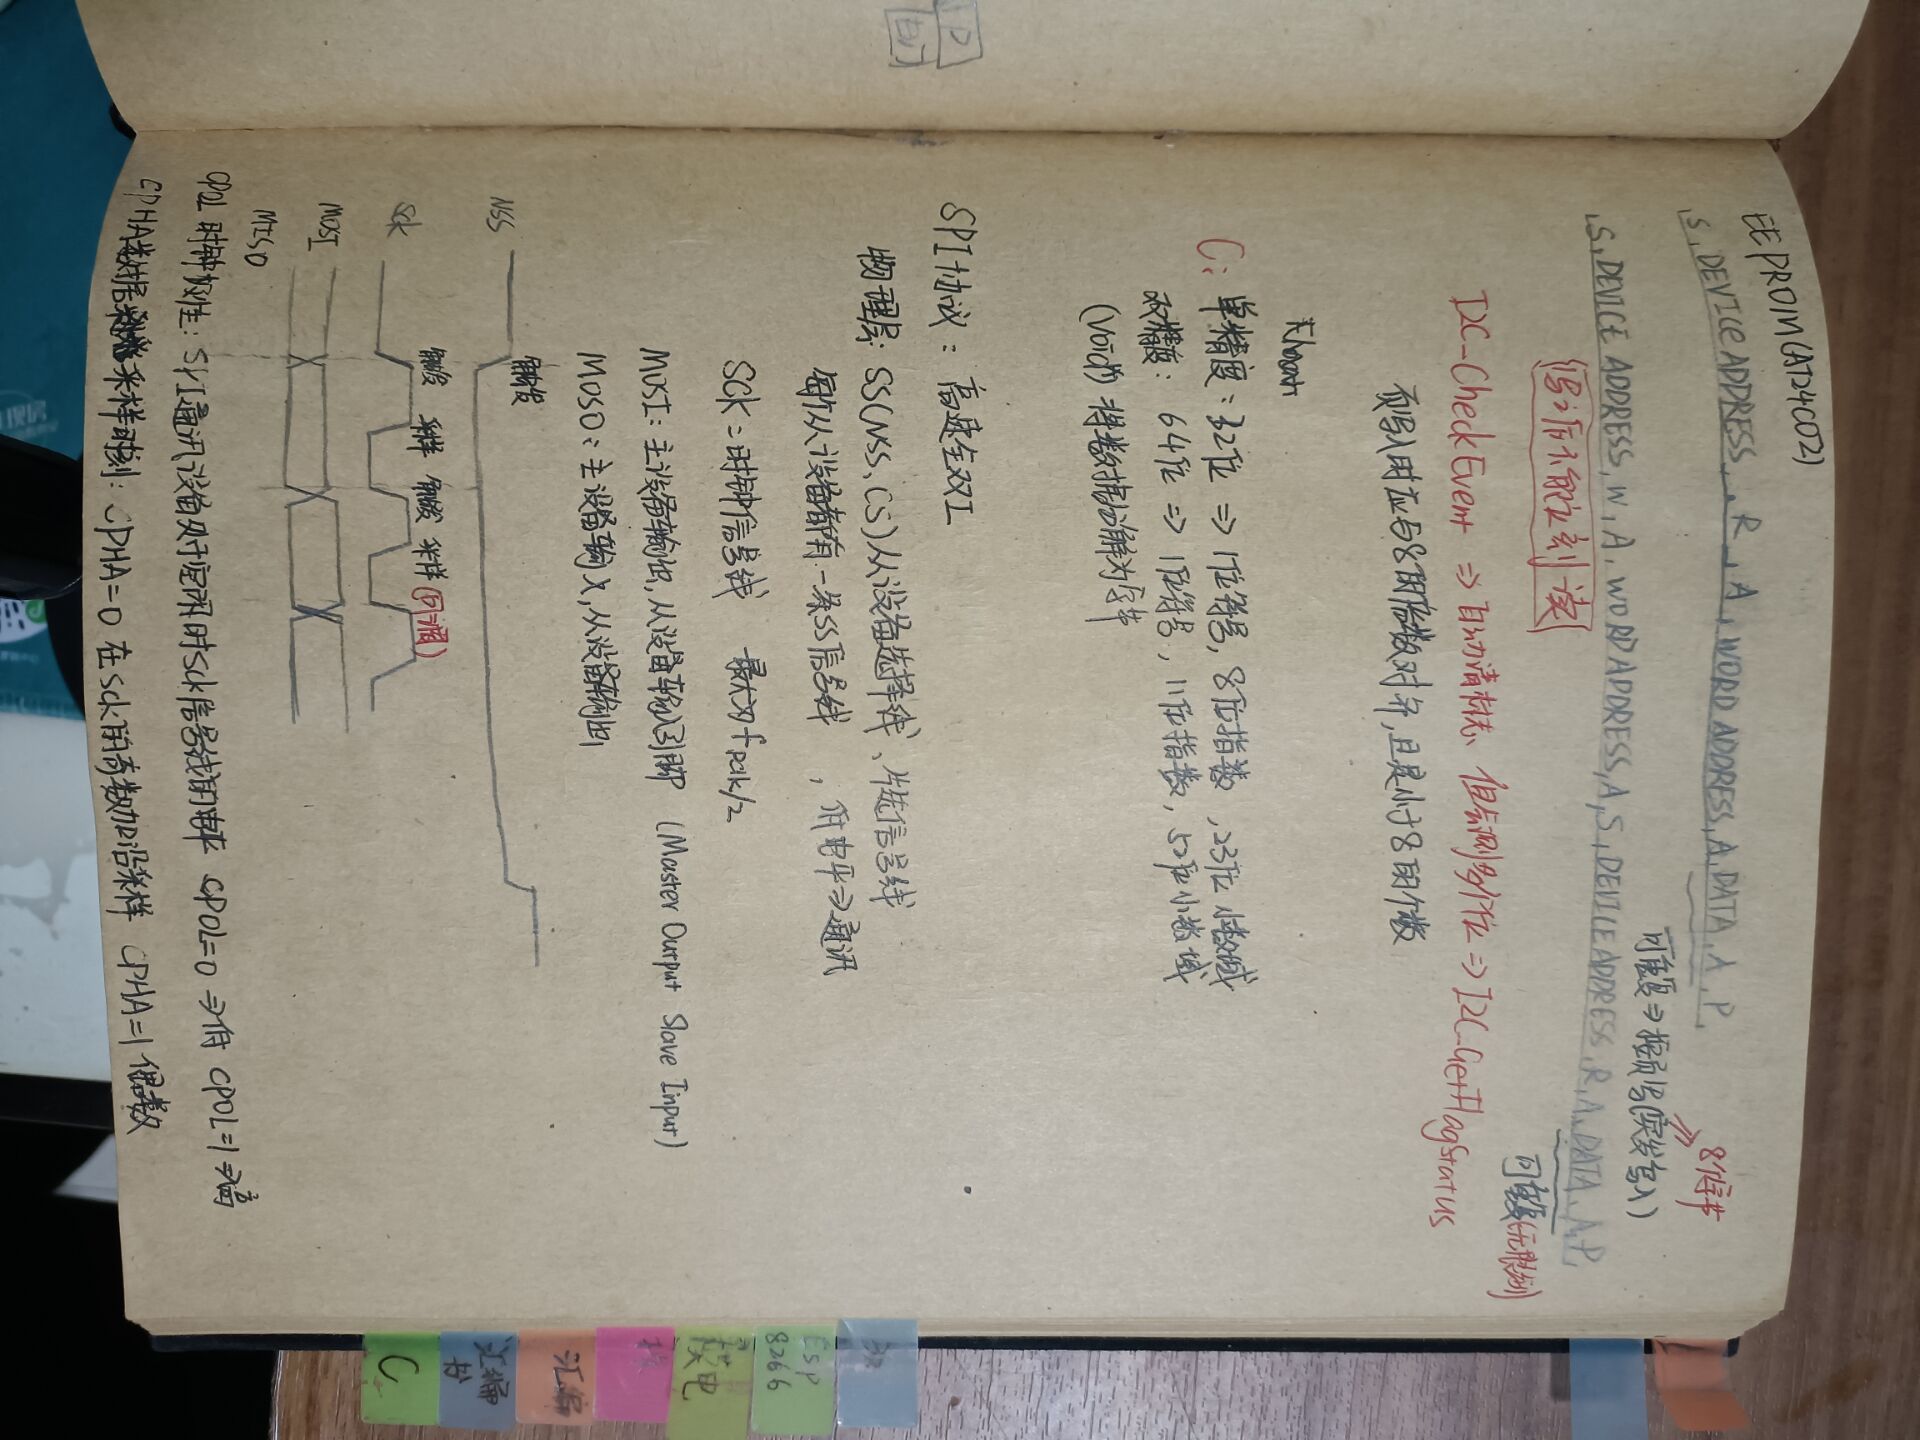 EEPROM(AT24C02)
S, DEVICE ADDRESS, R, A, WORD ADDRESS, A, DATA, A, P
8个字节
可重复⇒按页写(突发写入)
S, DEVICE ADDRESS, W, A, WORD ADDRESS, A, S, DEVICE ADDRESS, R, A, DATA, A, P
写之后不能立刻读
可重复(无限制)
I2C_CheckEvent ⇒ 自动清标志、但会测多个位 ⇒ I2C_GetFlagStatus
页写入时应与8的倍数对齐,且是小于8的个数
C: 单精度: 32位 ⇒ 1位符号, 8位指数, 23位 小数域
双精度: 64位 ⇒ 1位符号, 11位指数, 52位小数域
将数据分解为字节
SPI协议: 高速全双工
物理层: SS(NSS、CS)从设备选择线、片选信号线
每个从设备都有一条SS信号线, 低电平⇒通讯
SCK: 时钟信号线 最大为fpclk/2
MOSI: 主设备输出, 从设备输入引脚 (Master Output Slave Input)
MOSO: 主设备输入, 从设备输出
NSS 触发
触发 采样 触发 采样
SCK
MOSI
MISO
CPOL 时钟极性: SPI通讯设备处于空闲时SCK信号线的电平 CPOL=0 ⇒低 CPOL=1⇒高
CPHA数据采样时刻: CPHA=0 在SCK的奇数边沿采样 CPHA=1 偶数
Esp
8266
模电
汇编
汇编
书
C